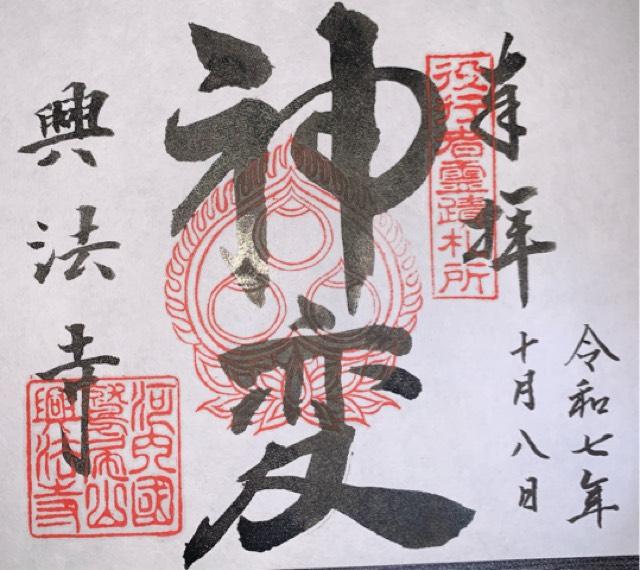 奉拝
役行者霊蹟札所
令和七年
十月八日
神変
興法寺
河内國
鷲尾山
興法寺